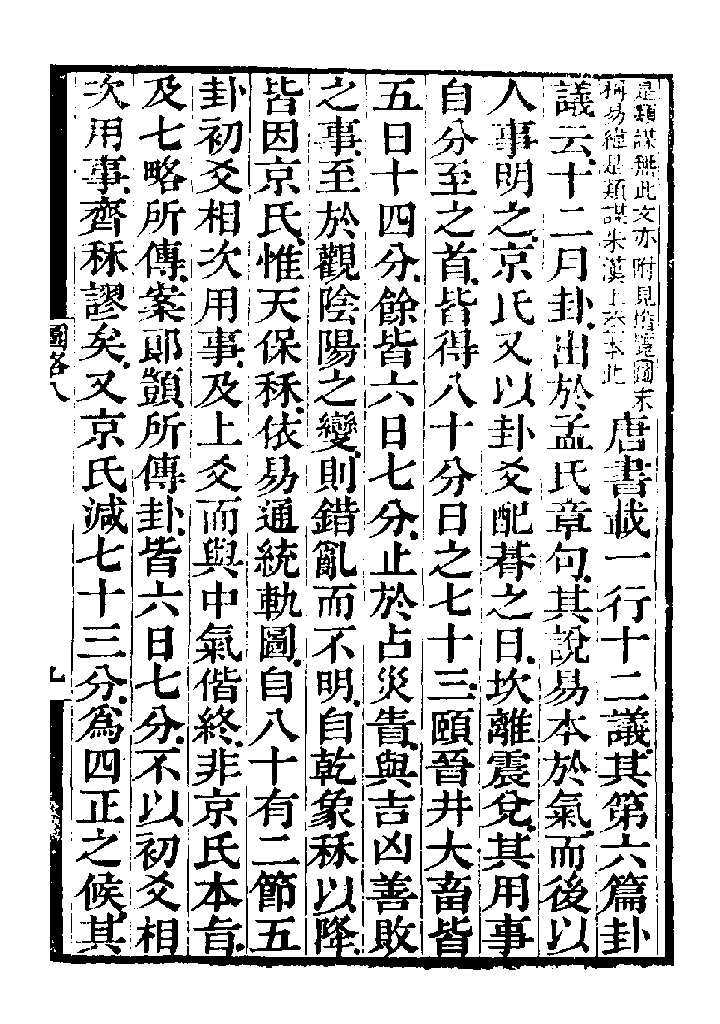 是類謀無此文亦附見稽覽圖末
稱易緯是類謀朱漢上 本此
唐書載一行十二議其第六篇卦
議云十二月卦出於孟氏章句其說易本於氣而後以
人事明之京氏又以卦爻配朞之日坎離震兌其用事
自分至之首皆得八十分日之七十三頤晉井大畜皆
五日十四分餘皆六日七分止於占災眚與吉凶善敗
之事至於觀陰陽之變則錯亂而不明自乾象秝以降
皆因京氏惟天保秝依易通統軌圖自八十有二節五
卦初爻相次用事及上爻而與中氣偕終非京氏本旨
及七略所傳案郎顗所傳卦皆六日七分不以初爻相
次用事齊秝謬矣又京氏減七十三分為四正之候其
圖略八
九